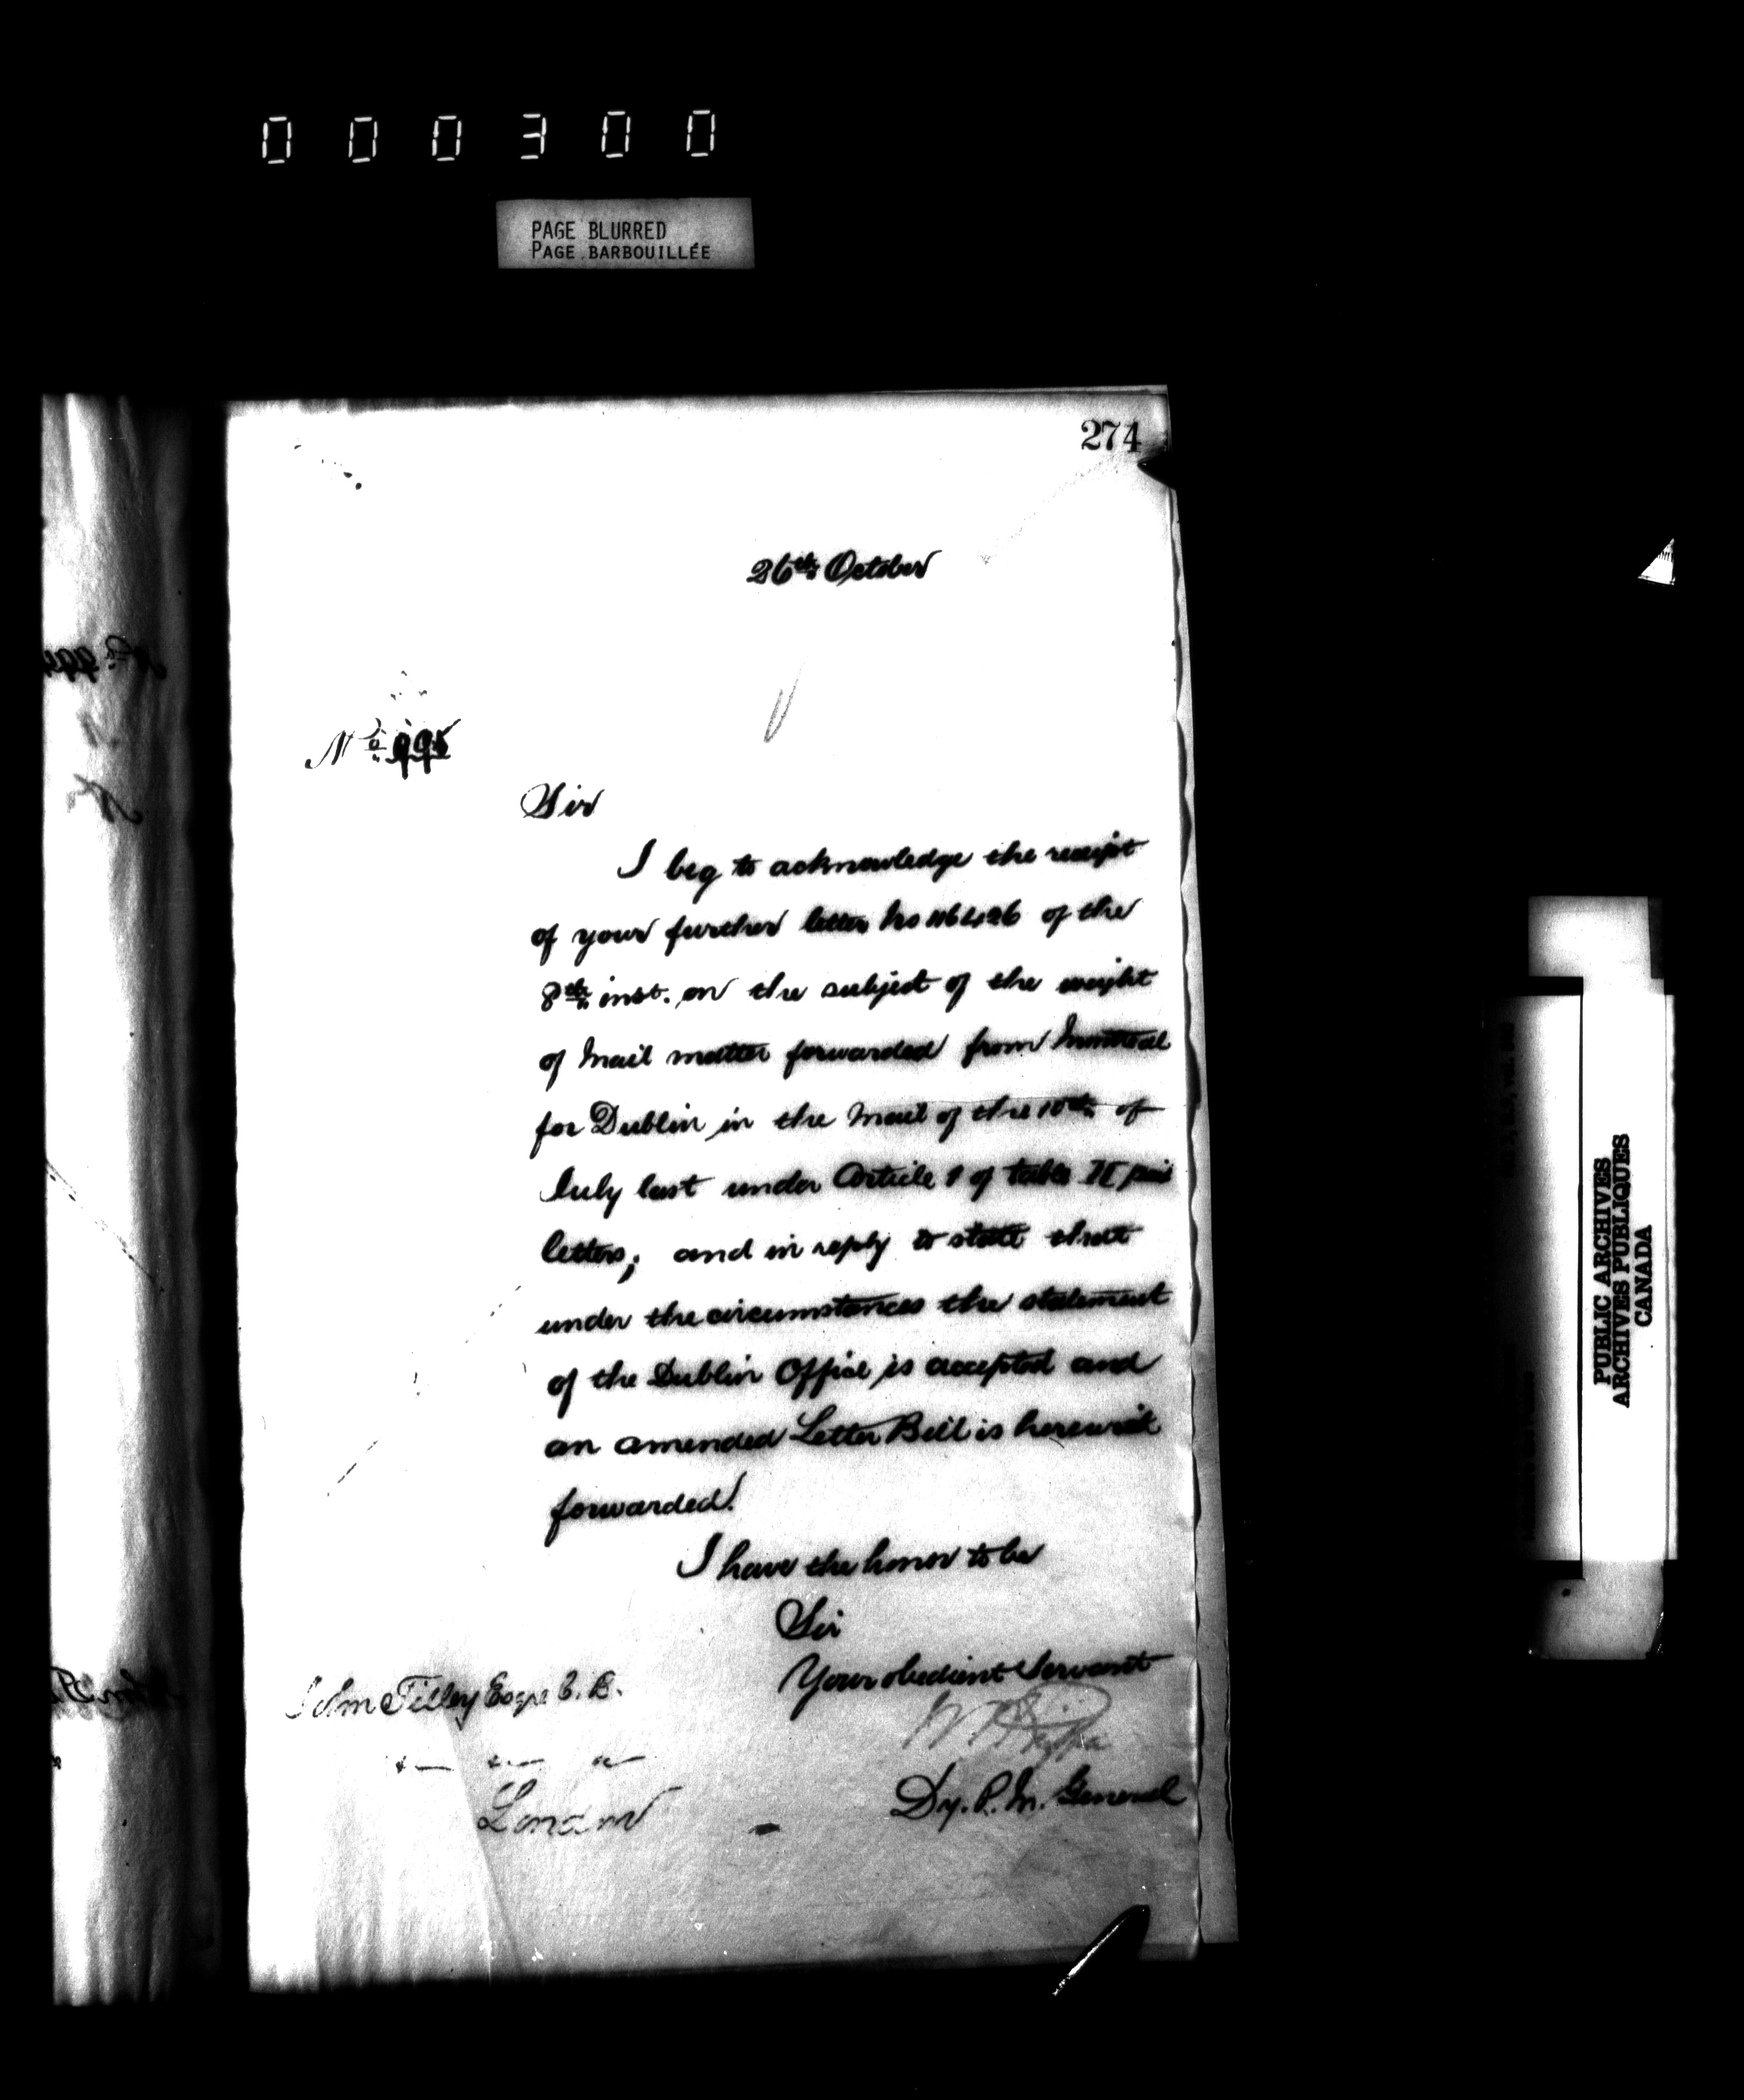 000300
PAGE BLURRED
PAGE BARBOUILLÉE
274
26th October
No. 995
Sir
I beg to acknowledge the receipt
of your further letter No 46426 of the
8th inst. on the subject of the weight
of Mail matter forwarded from Montreal
for Dublin in the Mail of the 10th of
July last under Article 1 of table II paid
letters; and in reply to state that
under the circumstances the statement
of the Dublin Office is accepted and
an amended Letter Bill is herewith
forwarded.
I have the honor to be
Sir
Your obedient Servant
Dy. P. M. General
John Tilley Esqre C.B.
London
PUBLIC ARCHIVES
ARCHIVES PUBLIQUES
CANADA